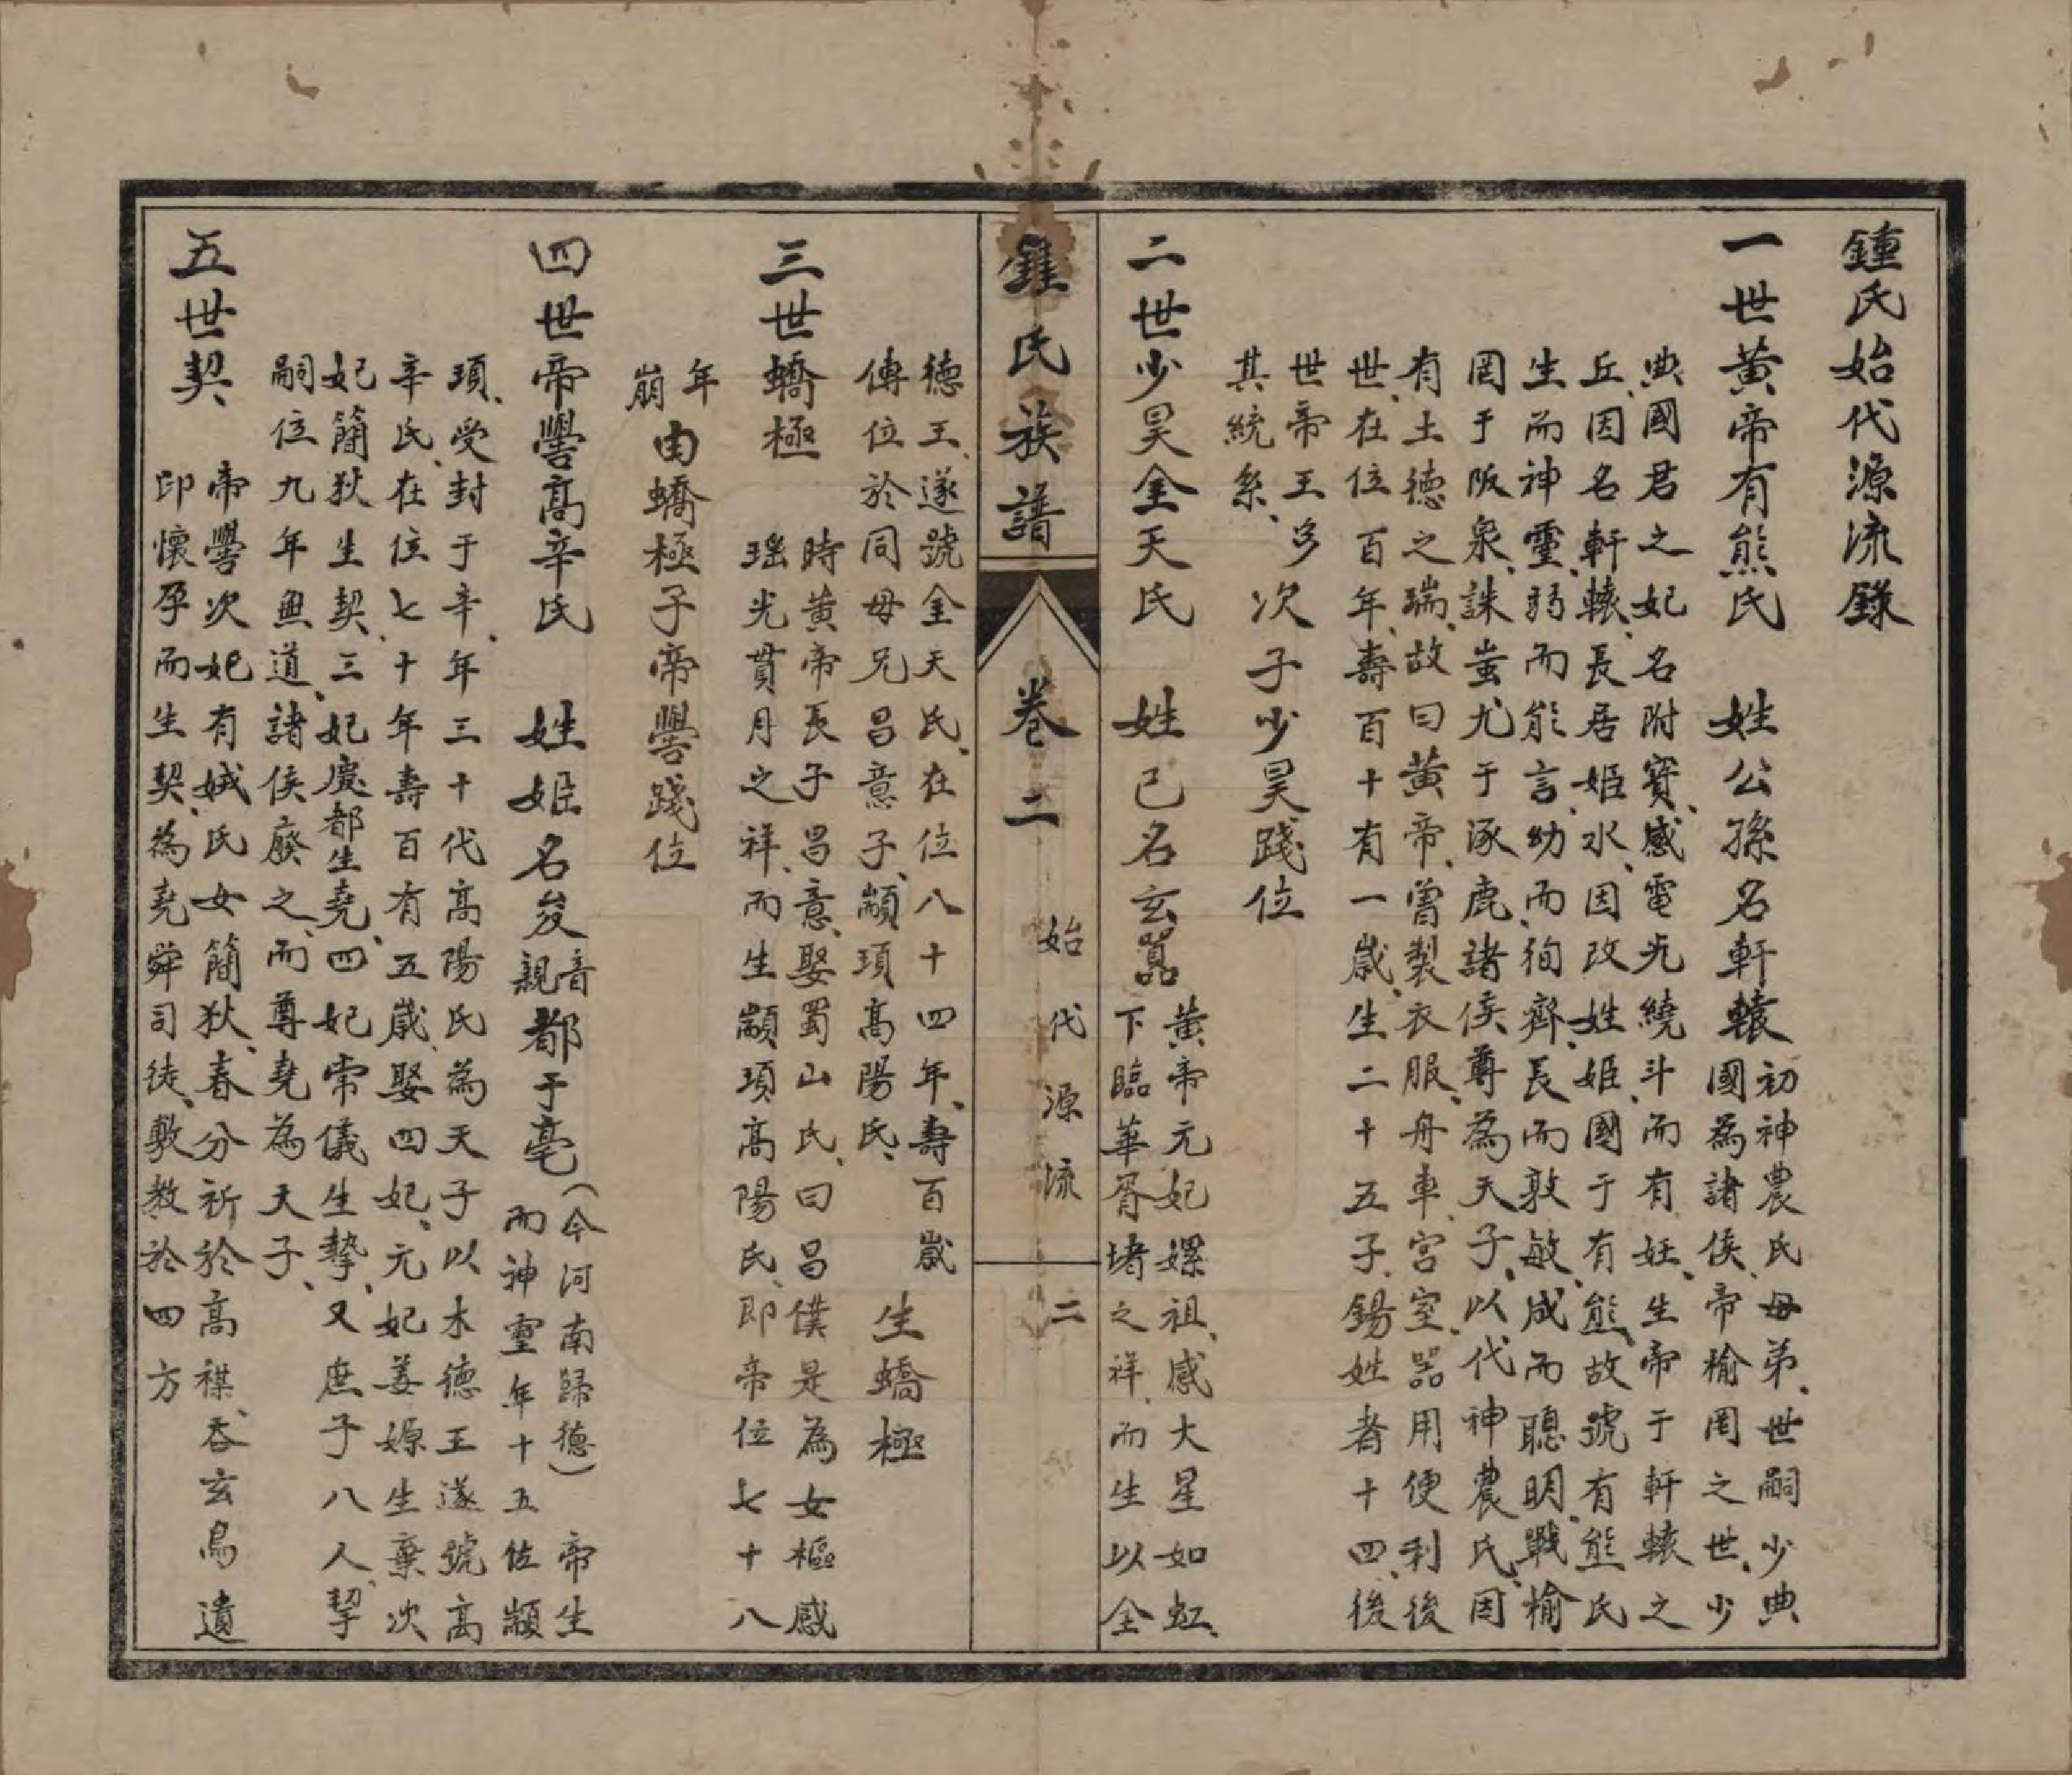 鍾氏始代源流錄
一世黃帝有熊氏　姓公孫名軒轅
初神農氏母弟、世嗣少典
國為諸侯、帝榆罔之世、少
典國君之妃名附寶、感電光繞斗而有妊、生帝于軒轅之
丘、因名軒轅、長居姬水、因改姓姬、國于有熊、故號有熊氏
生而神靈、弱而能言、幼而徇齊、長而敦敏、成而聰明、戰榆
罔于阪泉、誅蚩尤于涿鹿、諸侯尊為天子、以代神農氏、因
有土德之瑞、故曰黃帝、曾製衣服、舟車、宮室、器用便利後
世、在位百年、壽百十有一歲、生二十五子、錫姓者十四、後
世帝王多
其統系、
次子少昊踐位
二世少昊金天氏　姓己名玄囂
黃帝元妃嫘祖、感大星如虹、
下臨華胥堵之祥、而生以金
鍾氏族譜　卷二　始代源流　二
德王、遂號金天氏、在位八十四年、壽百歲
傳位於同母兄昌意子、顓頊高陽氏、
生蟜極
三世蟜極
時黃帝長子昌意、娶蜀山氏、曰昌僕是為女樞感
瑤光貫月之祥、而生顓頊高陽氏、即帝位七十八
年
崩
由蟜極子帝嚳踐位
四世帝嚳高辛氏　姓姬名夋
音
親
都于亳
（今河南歸德）　帝生
而神靈年十五佐顓
頊、受封于辛、年三十代高陽氏為天子以木德王遂號高
辛氏、在位七十年壽百有五歲、娶四妃、元妃姜嫄生棄次
妃簡狄生契、三妃慶都生堯、四妃常儀生摯、又庶子八人、摯
嗣位九年無道、諸侯廢之、而尊堯為天子、
五世契
帝嚳次妃有娀氏女簡狄、春分祈於高禖、吞玄鳥遺
卵懷孕而生契、為堯舜司徒、敷教於四方